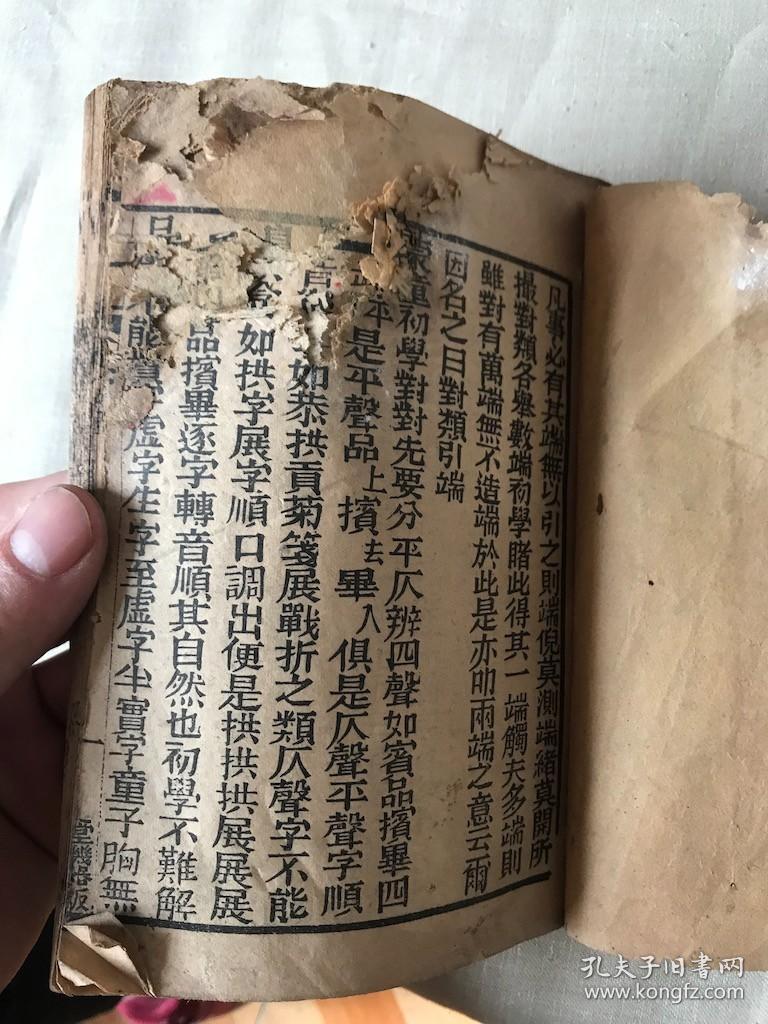 凡事必有其端無以引之則端倪莫測端緒莫開所
撮對類各舉數端初學賭此得其一端觸夫多端則
雖對有萬端無不造端於此是亦叩兩端之意云爾
因名之曰對類引端
初學對對先要分平仄辨四聲如賓品擯畢四
平是平聲品上擯去畢入俱是仄聲平聲字順
如恭拱貢菊箋展戰折之類仄聲字不能
如拱字展字順口調出便是拱拱拱展展展
品擯畢逐字轉音順其自然也初學不難解
不能對虛字生字至虛字半實字童子胸無
一
孔夫子旧书网
www.kongfz.com